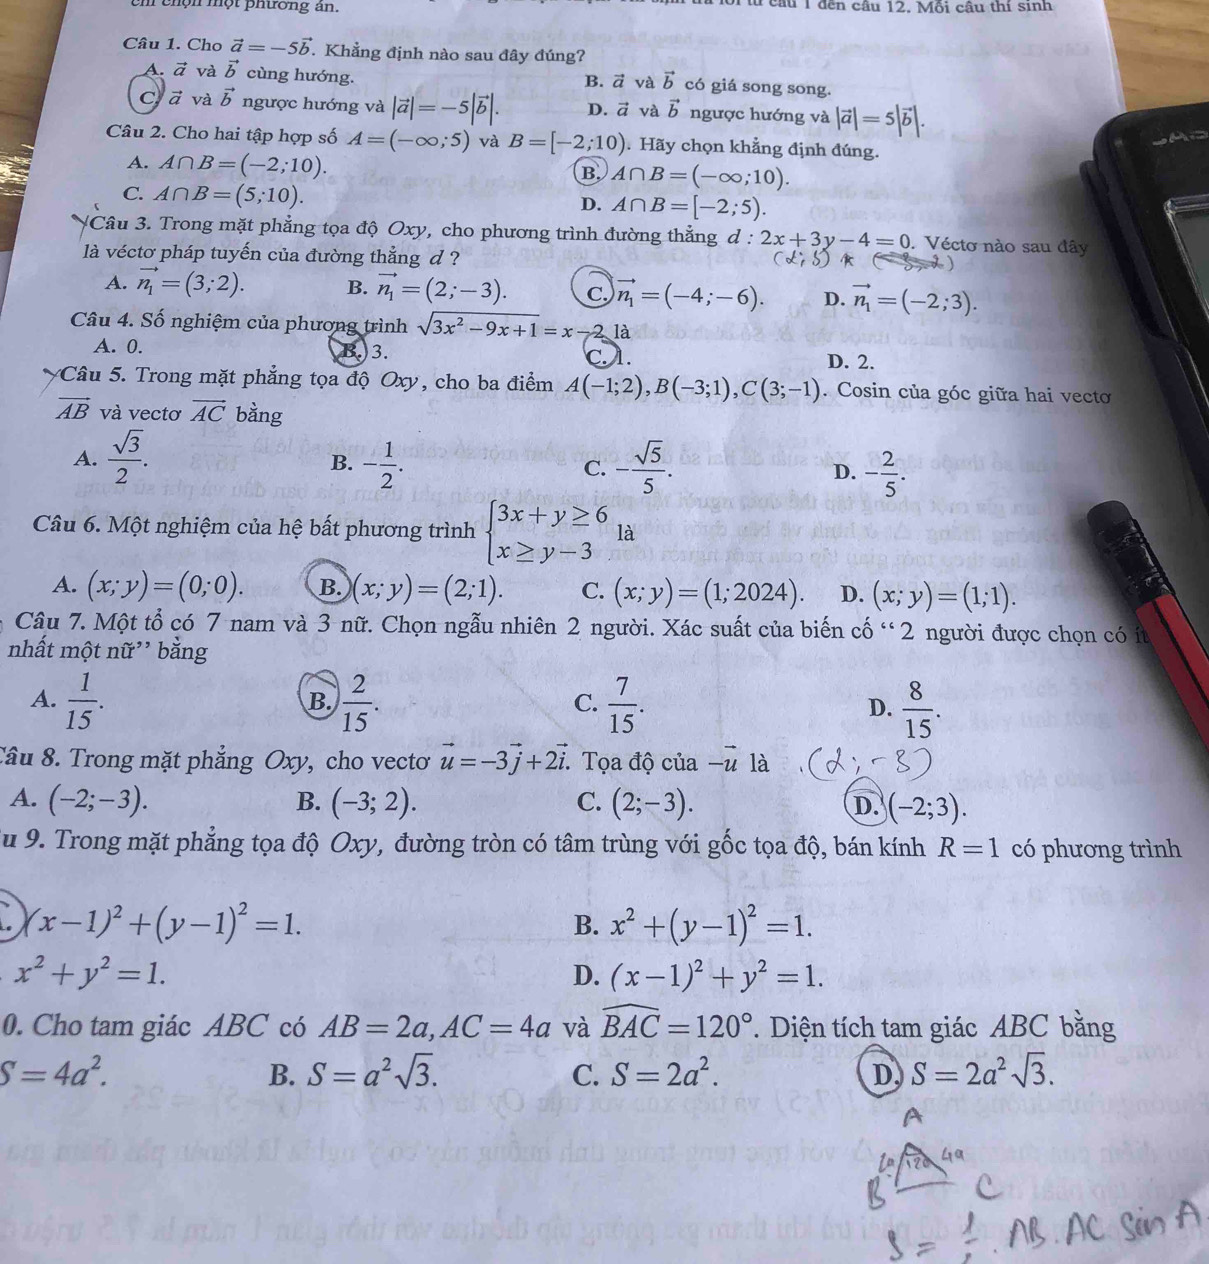 một phương án. câu 1 đến câu 12. Mỗi câu thí sinh
Câu 1. Cho a⃗ = −5b⃗. Khẳng định nào sau đây đúng?
A. a⃗ và b⃗ cùng hướng. B. a⃗ và b⃗ có giá song song.
C. a⃗ và b⃗ ngược hướng và |a⃗| = −5|b⃗|. D. a⃗ và b⃗ ngược hướng và |a⃗| = 5|b⃗|.
Câu 2. Cho hai tập hợp số A = (−∞;5) và B = [−2;10). Hãy chọn khẳng định đúng.
A. A∩B = (−2;10). B. A∩B = (−∞;10).
C. A∩B = (5;10). D. A∩B = [−2;5).
Câu 3. Trong mặt phẳng tọa độ Oxy, cho phương trình đường thẳng d : 2x + 3y − 4 = 0. Véctơ nào sau đây
là véctơ pháp tuyến của đường thẳng d ?
A. n₁⃗ = (3;2). B. n₁⃗ = (2;−3). C. n₁⃗ = (−4;−6). D. n₁⃗ = (−2;3).
Câu 4. Số nghiệm của phương trình √(3x² − 9x + 1) = x − 2 là
A. 0. B. 3. C. 1. D. 2.
Câu 5. Trong mặt phẳng tọa độ Oxy, cho ba điểm A(−1;2), B(−3;1), C(3;−1). Cosin của góc giữa hai vectơ
AB⃗ và vectơ AC⃗ bằng
A. √3/2. B. −1/2. C. −√5/5. D. −2/5.
Câu 6. Một nghiệm của hệ bất phương trình {3x + y ≥ 6; x ≥ y − 3 là
A. (x; y) = (0;0). B. (x; y) = (2;1). C. (x; y) = (1;2024). D. (x; y) = (1;1).
Câu 7. Một tổ có 7 nam và 3 nữ. Chọn ngẫu nhiên 2 người. Xác suất của biến cố “ 2 người được chọn có ít
nhất một nữ” bằng
A. 1/15. B. 2/15. C. 7/15. D. 8/15.
Câu 8. Trong mặt phẳng Oxy, cho vectơ u⃗ = −3j⃗ + 2i⃗. Tọa độ của −u⃗ là
A. (−2;−3). B. (−3; 2). C. (2;−3). D. (−2;3).
u 9. Trong mặt phẳng tọa độ Oxy, đường tròn có tâm trùng với gốc tọa độ, bán kính R = 1 có phương trình
(x − 1)² + (y − 1)² = 1. B. x² + (y − 1)² = 1.
x² + y² = 1. D. (x − 1)² + y² = 1.
0. Cho tam giác ABC có AB = 2a, AC = 4a và BAC = 120°. Diện tích tam giác ABC bằng
S = 4a². B. S = a²√3. C. S = 2a². D. S = 2a²√3.
A
2a 120 4a
B C
S = ½ . AB . AC sin A